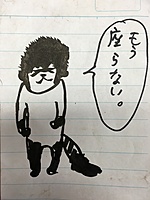 もう
座らない。